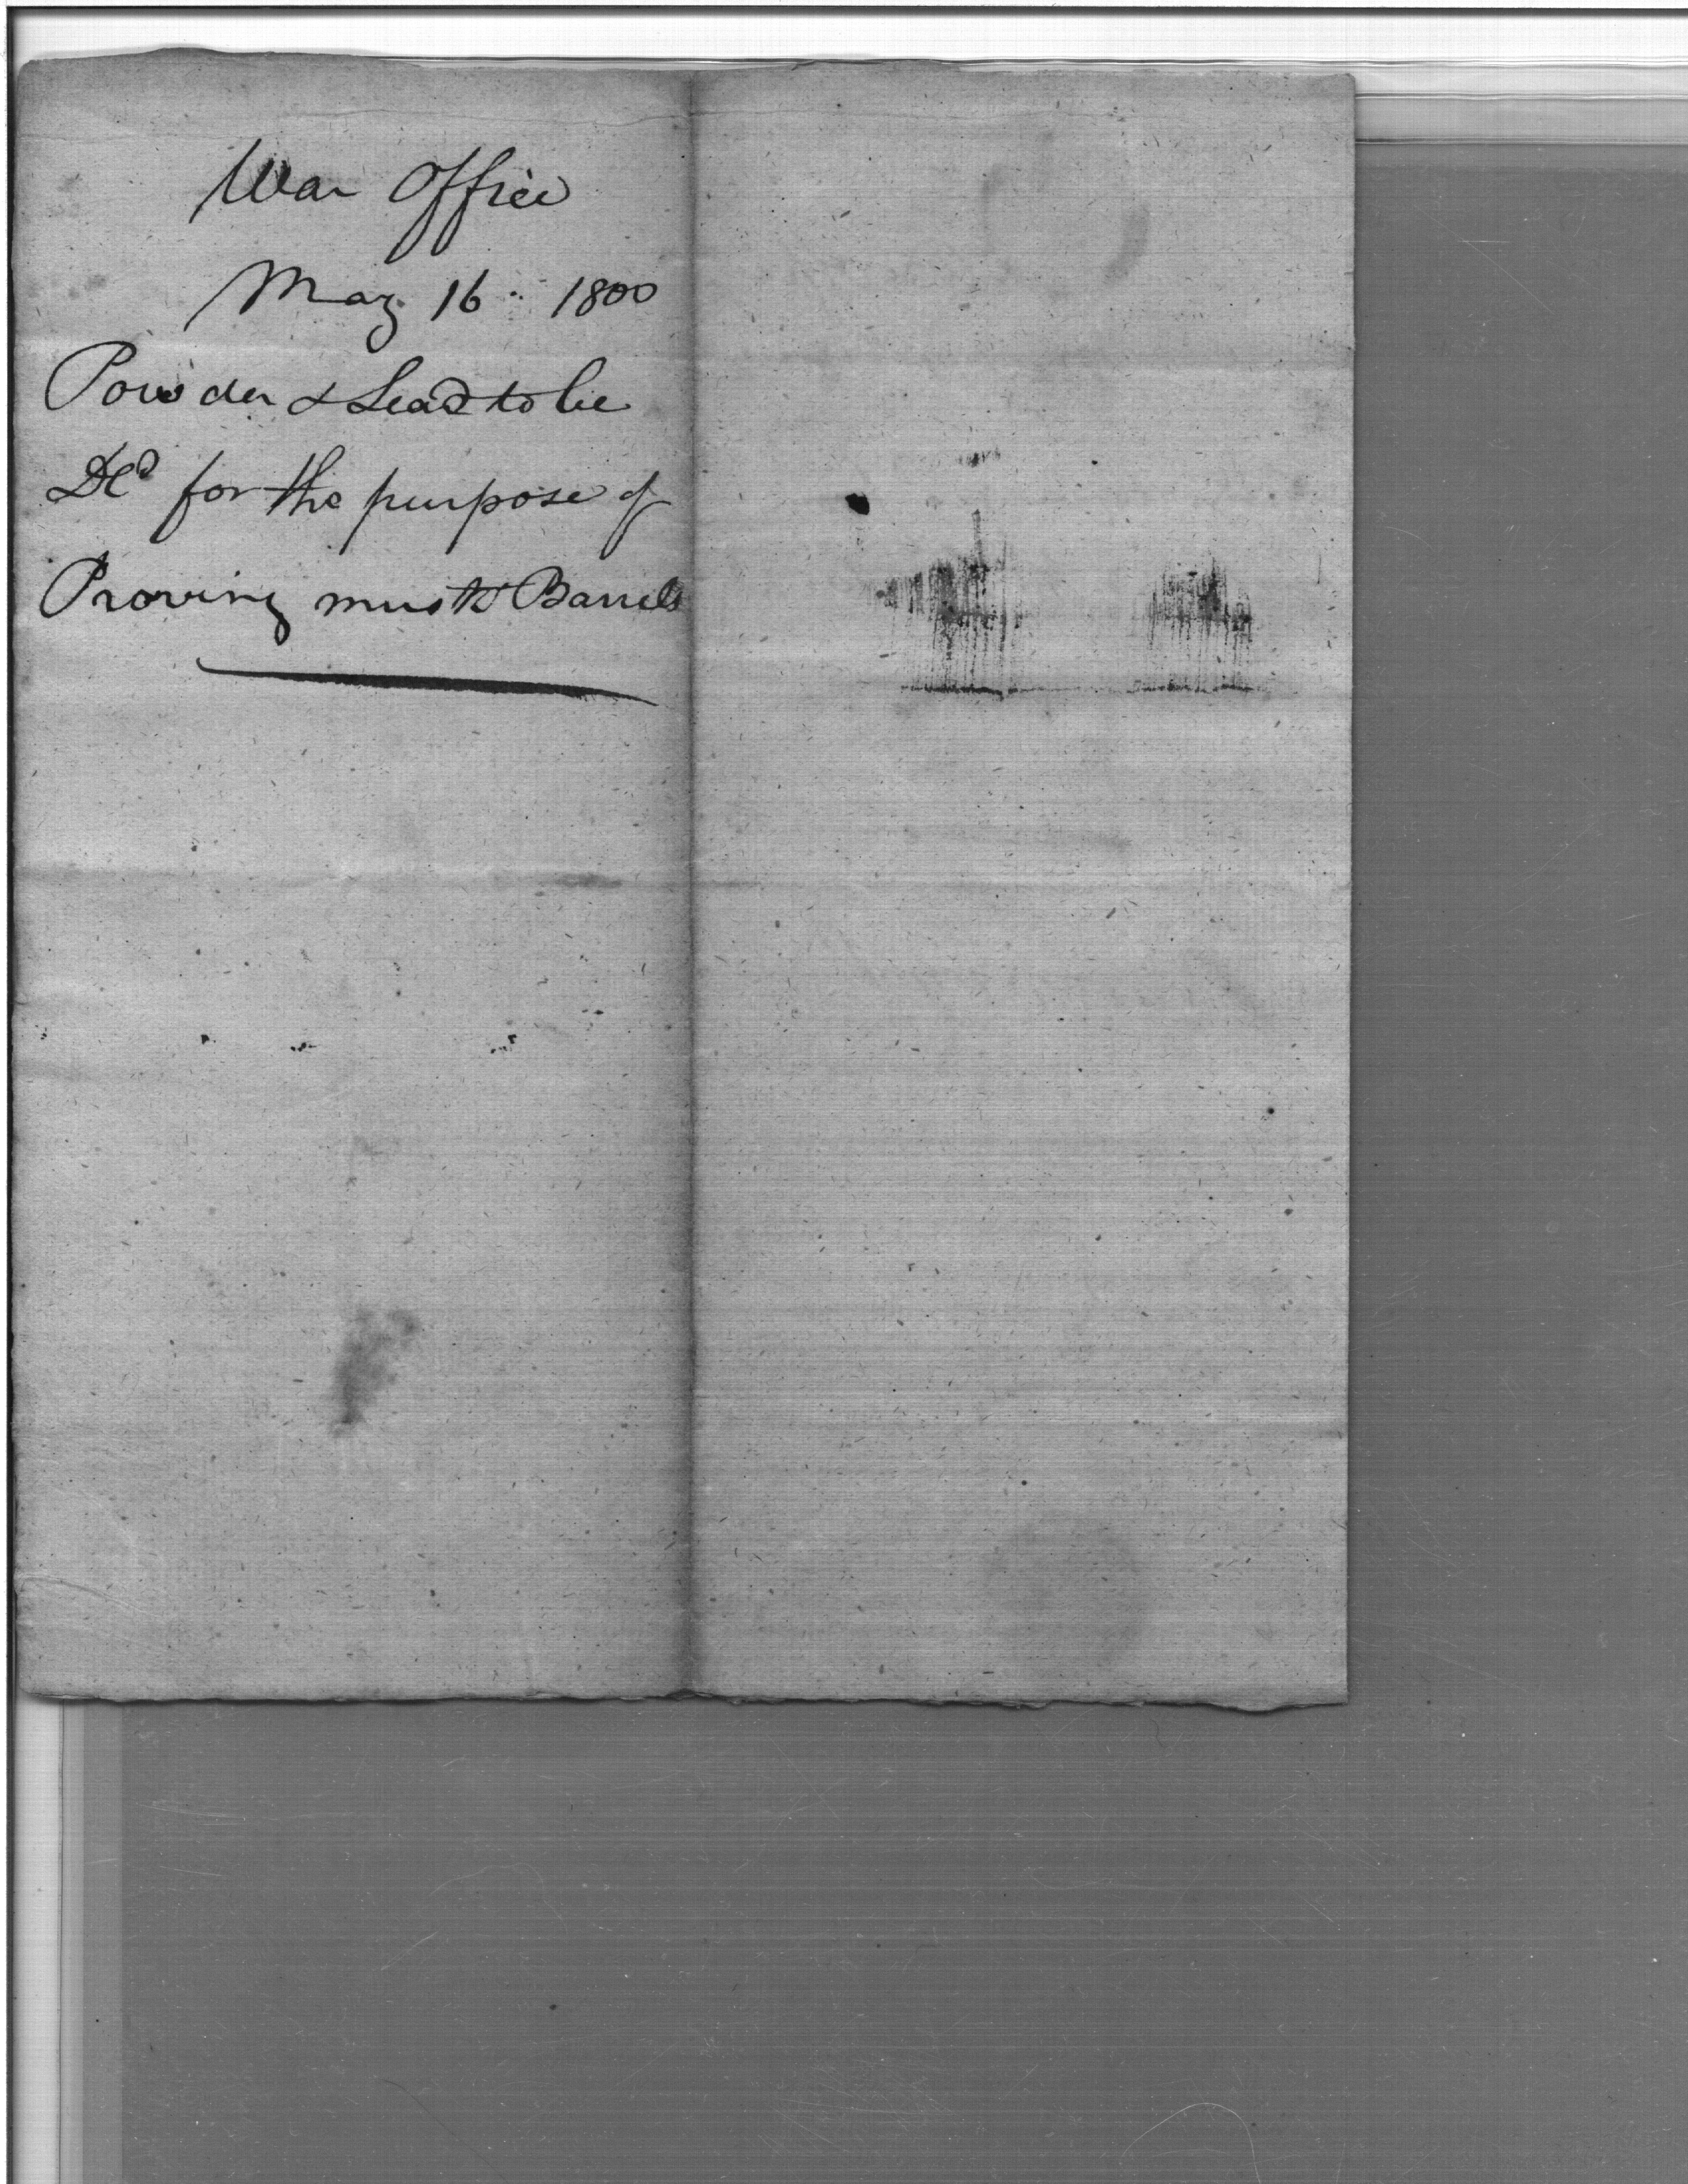 War Office
May 16 1800
Powder & Lead to be
Dld for the purpose of
Proving muskt Barrels